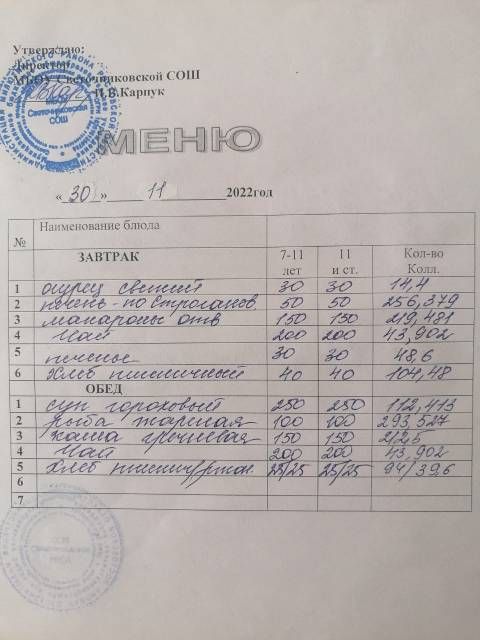 Утверждаю:
Директор
МБОУ Светочниковской СОШ
Н.В.Карпук
МЕНЮ
«30» 11 2022год
№ Наименование блюда
ЗАВТРАК 7-11 лет 11 и ст. Кол-во Колл.
1 огурец свежий 30 30 14,4
2 печень-по строганов. 50 50 256,379
3 макароны отв 150 150 219,481
4 Чай 200 200 43,902
5 печенье 30 30 48,6
6 Хлеб пшеничный 40 40 104,48
ОБЕД
1 суп гороховый 250 250 112,413
2 рыба жареная 100 100 293,527
3 каша гречневая 150 150 212,5
4 Чай 200 200 43,902
5 Хлеб 25/25 25/25 94/39,6
6
7